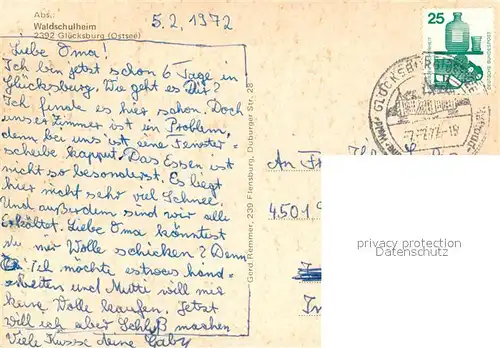 Abs.:
Waldschulheim
2392 Glücksburg (Ostsee)
5.2.1972
Liebe Oma!
Ich bin jetzt schon 6 Tage in
Glücksburg. Wie geht es Dir?
Ich finde es hier schon. Doch
unser Zimmer ist ein Problem,
denn bei uns ist eine Fenster-
scheibe kaputt. Das Essen ist
nicht so besonderst. Es liegt
hier nicht sehr viel Schnee.
Und außerdem sind wir alle
Erkältet. Liebe Oma könntest
du mir Wolle schicken? Denn
Ich möchte etwas hand-
arbeiten und Mutti will mir
keine Wolle kaufen. Jetzt
will ich aber Schluß machen
Viele Küsse deine Gaby
Gerd Remmer, 239 Flensburg, Duburger Str. 28
25
DEUTSCHE BUNDESPOST
GLÜCKSBURG
An
4501
privacy protection
Datenschutz